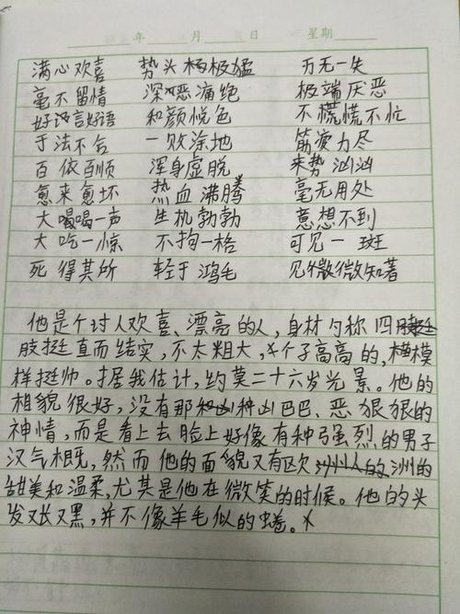 年 月 日 星期
满心欢喜 势头极猛 万无一失
毫不留情 深恶痛绝 极端厌恶
好言好语 和颜悦色 不慌不忙
于法不合 一败涂地 筋疲力尽
百依百顺 浑身虚脱 来势汹汹
愈来愈坏 热血沸腾 毫无用处
大喝一声 生机勃勃 意想不到
大吃一惊 不拘一格 可见一斑
死得其所 轻于鸿毛 见微知著
他是个讨人欢喜、漂亮的人,身材匀称四
肢挺直而结实,不太粗大,个子高高的,模
样挺帅。据我估计,约莫二十六岁光景。他的
相貌很好,没有那种凶巴巴、恶狠狠的
神情,而是看上去脸上好像有种强烈的男子
汉气概,然而他的面貌又有欧洲的
甜美和温柔,尤其是他在微笑的时候。他的头
发又长又黑,并不像羊毛似的卷。